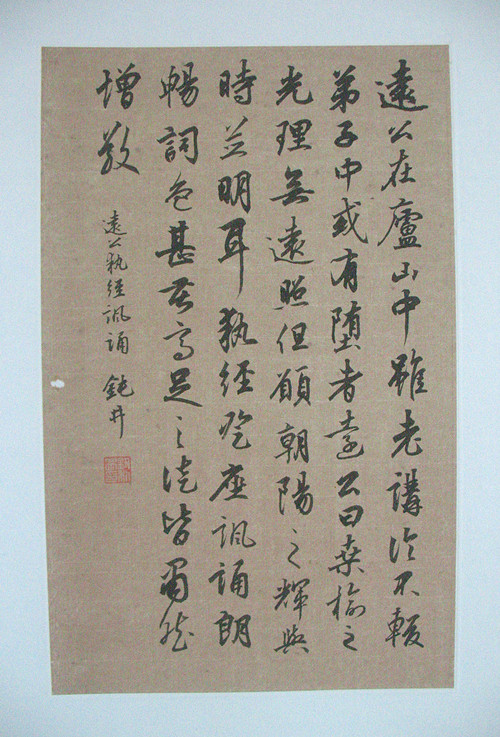 遠公在廬山中雖老講論不輟
弟子中或有堕者遠公曰桑榆之
光理無遠照但願朝陽之輝與
時並明耳執經登座諷誦朗
暢詞色甚苦高足之徒皆肅然
增敬
遠公執經諷誦 鈍井